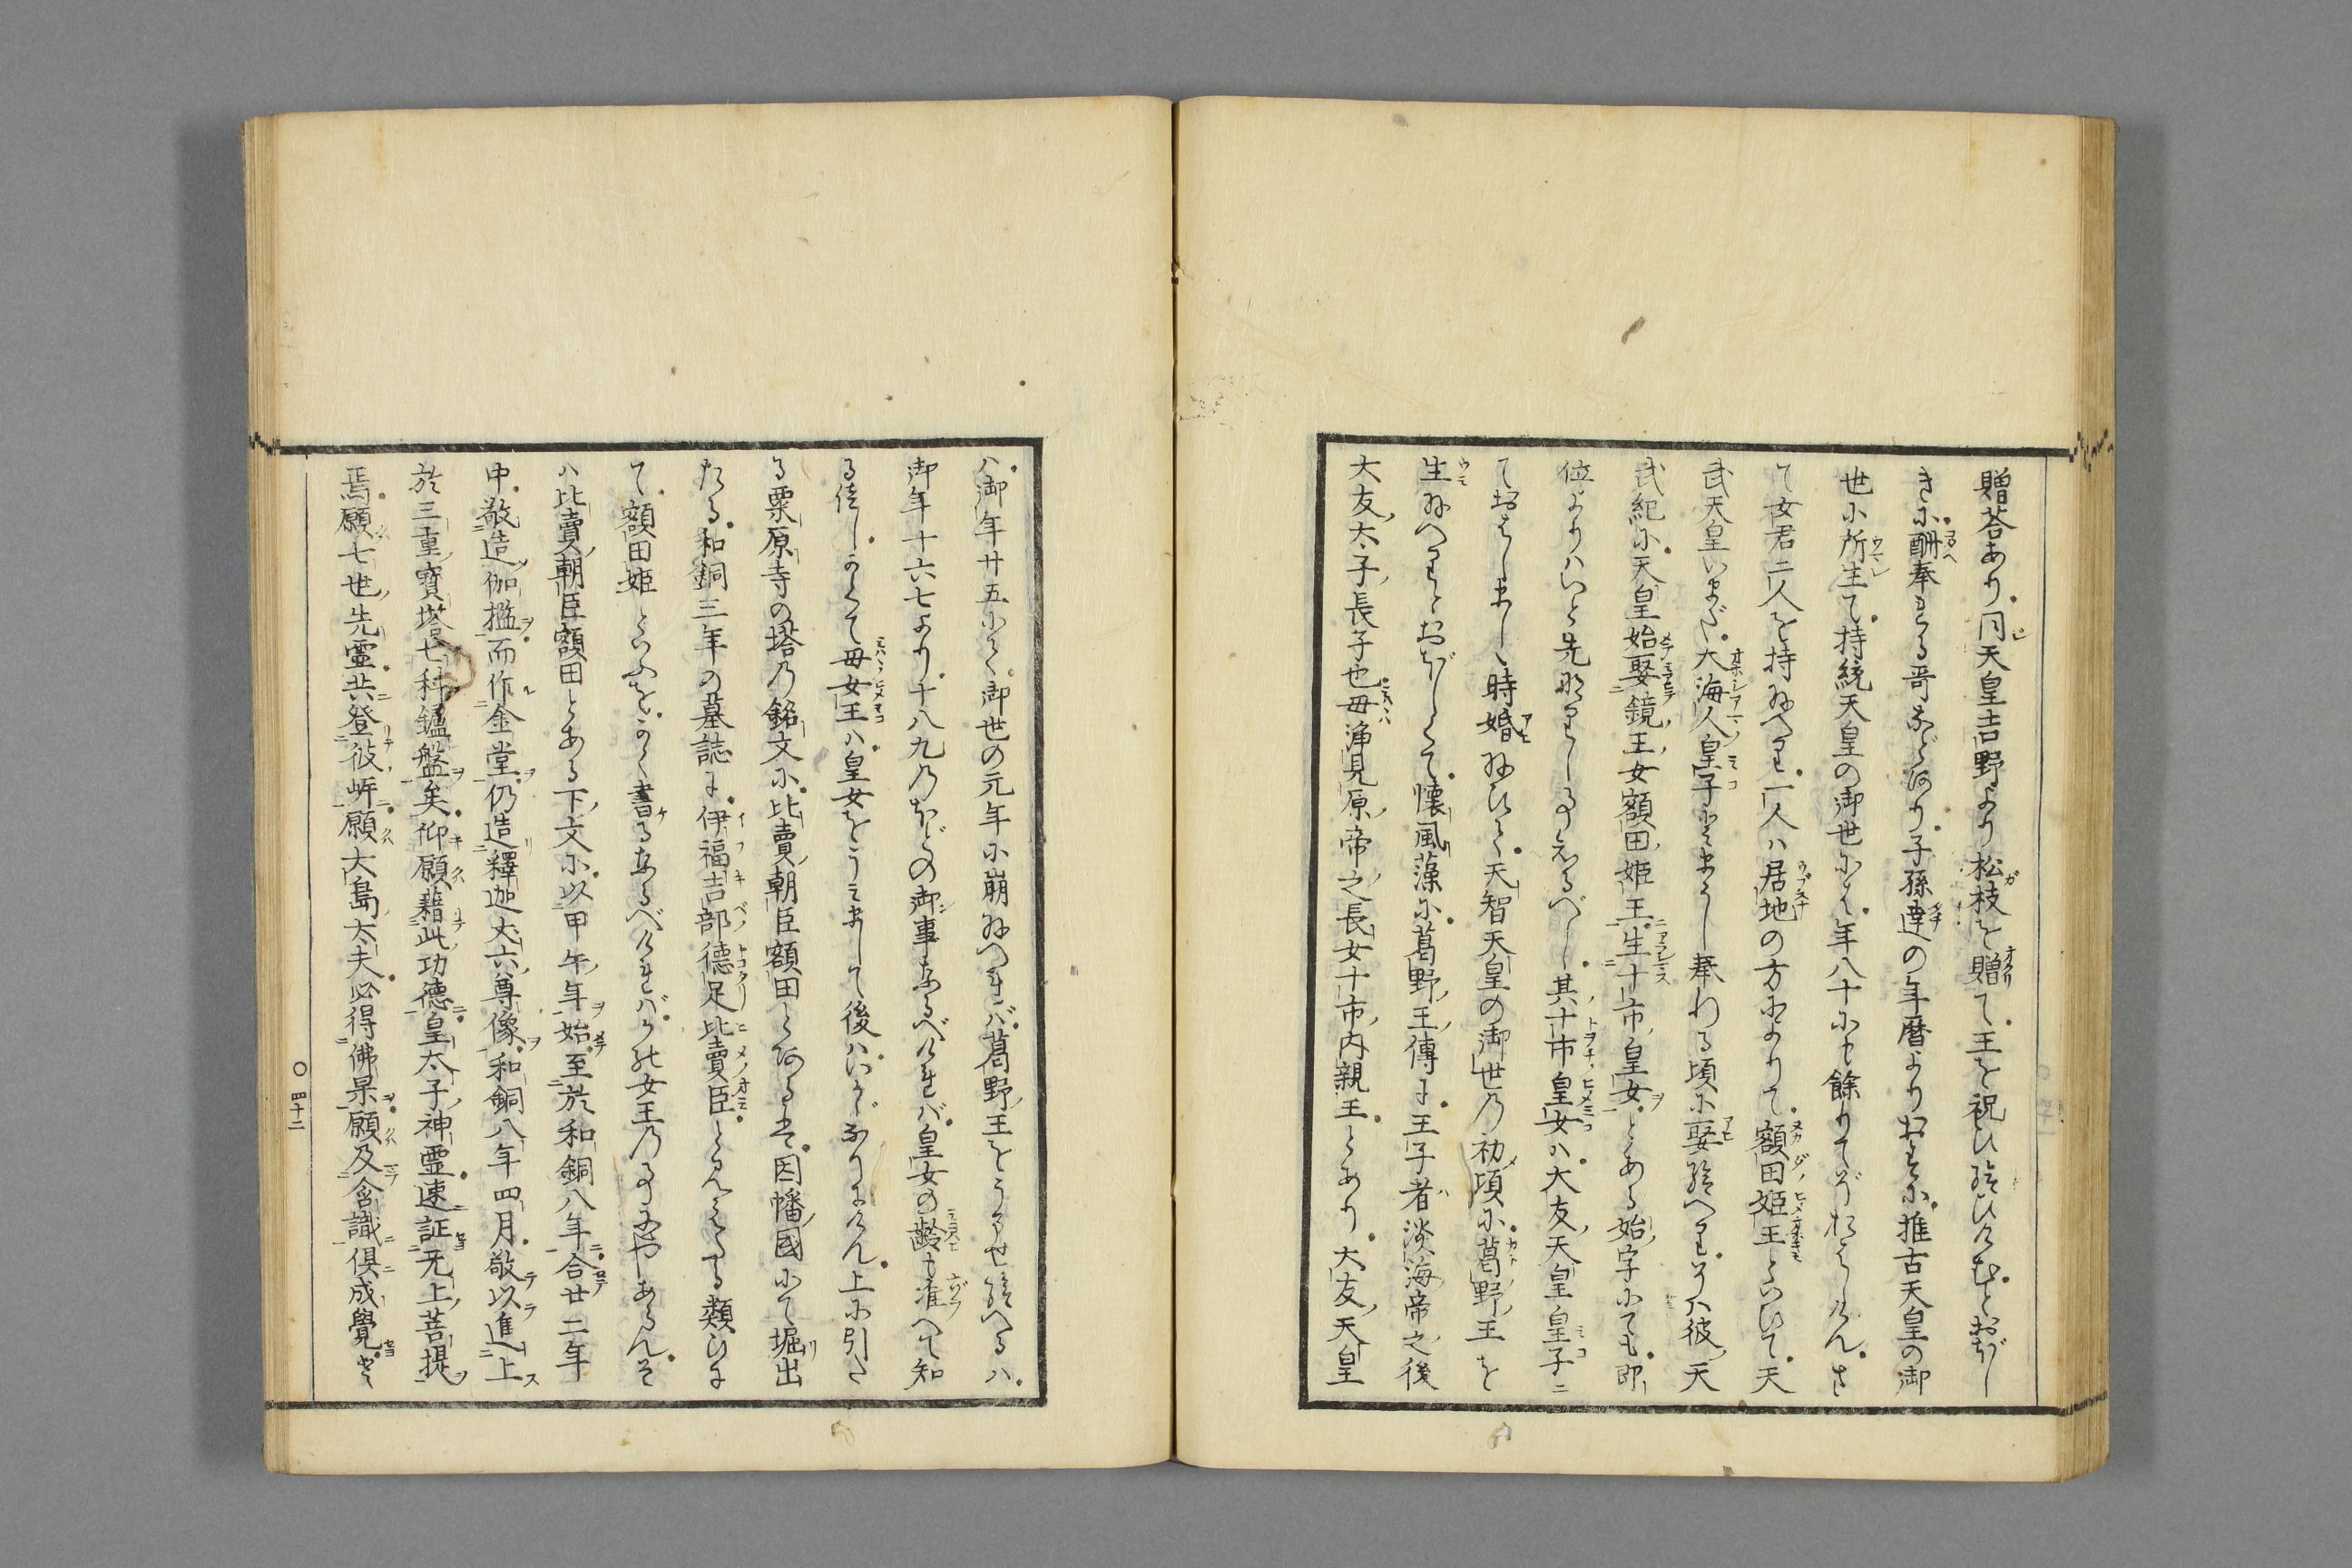 贈荅あり同天皇吉野より松枝を贈て王を祝ひ給ひけむとおぼし
きに酬奉れる哥などあり子孫達の年暦よりおすに推古天皇の御
世に所生て持統天皇の御世には年八十にも餘りてぞおはしけんさ
て女君二人を持給へり一人ハ居地の方によりて額田姫王といひて天
武天皇いまだ大海人皇子とまうし奉れる頃に娶給へりそハ彼天
武紀に天皇始娶鏡王女額田姫王生十市皇女とある始字にても即
位よりハいと先なりし事知るべし其十市皇女ハ大友天皇皇子ニ
ておはしましゝ時婚給ひて天智天皇の御世乃初頃に葛野王を
生給へりとおぼしくて懐風藻に葛野王傳に王子者淡海帝之後
大友太子長子也母浄見原帝之長女十市内親王とあり大友天皇
ハ御年廿五にて御世の元年に崩給へれバ葛野王をうませ給へるハ
御年十六七より十八九乃ほどの御事なるべけれバ皇女の齢も准へて知
る佳しかくて母女王ハ皇女をうみまして後ハいかゞなりにけん上に引た
る粟原寺の塔乃銘文に比賣朝臣額田とあるは因幡國にて堀出
たる和銅三年の墓誌に伊福吉部德足比賣臣とみえたる類ひに
て額田姫といふをかく書るなるべけれバかの女王乃事にやあらんそ
ハ比賣朝臣額田とある下文に以甲午年始至於和銅八年合廿二年
中敬造伽檻而作金堂仍造釋迦丈六尊像和銅八年四月敬以進上
於三重寶塔七科鑪盤矣仰願藉此功德皇太子神霊速証无上菩提
焉願七世先霊共登彼岸願大島大夫必得佛果願及含識倶成覺き
〇四十二